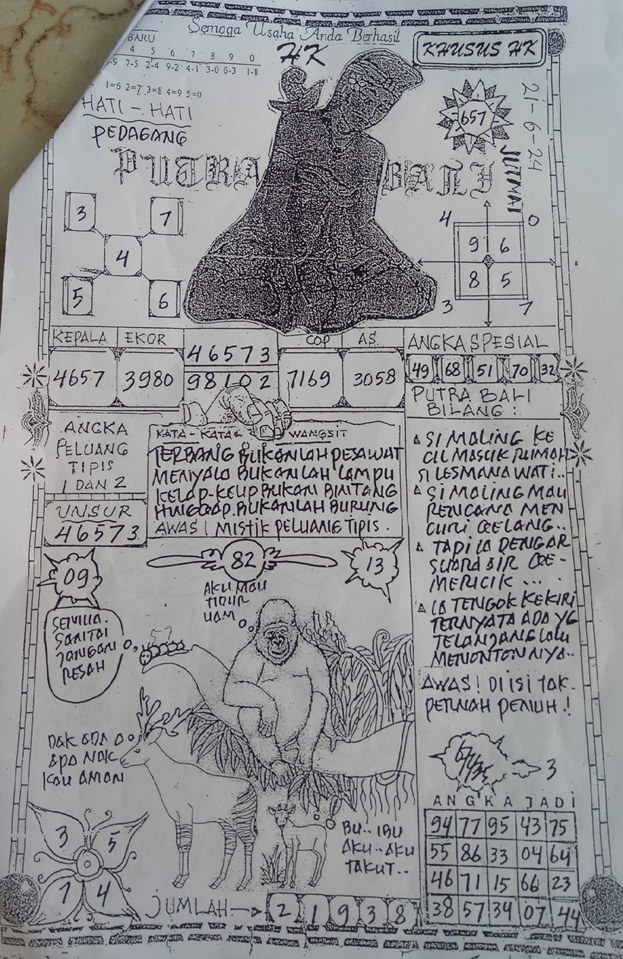 Semoga Usaha Anda Berhasil
BARU
4 5 6 7 8 9 0
7-5 2-4 9-2 4-1 3-0 6-3 1-8
1=6 2=7 3=8 4=9 5=0
HK
KHUSUS HK
HATI - HATI
PEDAGANG
PUTRA BALI
657
21-6-24
JUMAT
3 7
4
5 6
4 0
9 6
8 5
3 7
KEPALA EKOR
4657 3980
46573
98102
COP AS
7169 3058
ANGKA SPESIAL
49 68 51 70 32
ANGKA
PELUANG
TIPIS
1 DAN 2
UNSUR
46573
KATA - KATA WANGSIT
TERBANG BUKANLAH PESAWAT
MENYALA BUKANLAH LAMPU
KELAP-KELIP BUKAN BINTANG
HINGGAP BUKANLAH BURUNG
AWAS! MISTIK PELUANG TIPIS.
PUTRA BALI
BILANG :
SI MALING KE
CIL MASUK RUMAH
SI LESMANAWATI..
SI MALING MAU
RENCANA MEN
CURI GELANG..
TAPI IA DENGAR
SUARA AIR GE-
MERICIK ...
IA TENGOK KEKIRI
TERNYATA ADA YG
TELANJANG LALU
MENONTONNYA..
AWAS! DI ISI TAK
PERNAH PENUH.!
09
82
13
AKU MAU
TIDUR
UAM
SEMUA.
SANTAI
JANGAN
RESAH
57
DAK ADA
APA NAK
KAU AMAN
BU.. IBU
AKU.. AKU
TAKUT..
3 5
7 4
JUMLAH → 2 1 9 3 8
3
ANGKA JADI
94 77 95 43 75
55 86 33 04 64
46 71 15 66 23
38 57 34 07 44